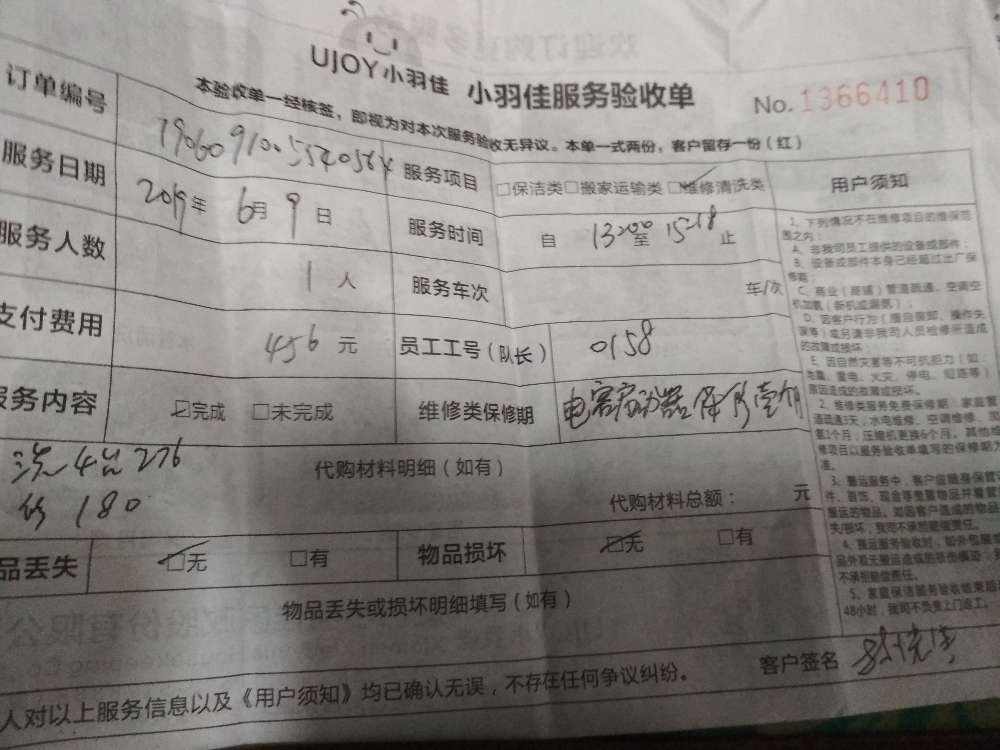 UJOY小羽佳 小羽佳服务验收单 No.1366410
本验收单一经核签，即视为对本次服务验收无异议。本单一式两份，客户留存一份（红）
订单编号
服务项目 □保洁类□搬家运输类□维修清洗类 用户须知
服务日期 2019年 6月 9日 服务时间 自 13:00至 15:18 止
服务人数 1 人 服务车次 车/次
支付费用 456 元 员工工号（队长） 0158
服务内容 ☑完成 □未完成 维修类保修期 电容启动器保修壹个
洗4台276 代购材料明细（如有）
修 180 代购材料总额： 元
品丢失 □无 □有 物品损坏 □无 □有
物品丢失或损坏明细填写（如有）
人对以上服务信息以及《用户须知》均已确认无误，不存在任何争议纠纷。 客户签名
1、下列情况不在维修项目的维保范
围之内：
A、非我司员工提供的设备或部件；
B、设备或部件本身已经超过出厂保
修期；
C、商业（商铺）管道疏通、空调空
机加氟（新机或漏氟）；
D、因客户行为（擅自装卸、操作失
误等）或另请非我司人员检修所造成
的故障或损坏；
E、因自然灾害等不可抗拒力（如：
地震、雷电、火灾、停电、短路等）
原因造成的故障或损坏。
2、维修类服务免费保修期：家庭管
道疏通3天，水电维修、空调维修、加
氟1个月；压缩机更换6个月。其他维
修项目以服务验收单填写的保修期为
准。
3、搬运服务中，客户应随身保管证
件、首饰、现金等贵重物品并看管
搬运的物品。如因客户造成的物品
失/损坏，我司不承担赔偿责任。
4、搬运服务验收时，如外包装
品外观无搬运造成的损伤痕迹，
不承担赔偿责任。
5、家庭保洁服务验收结束后
48小时，我司不负责上门返工。